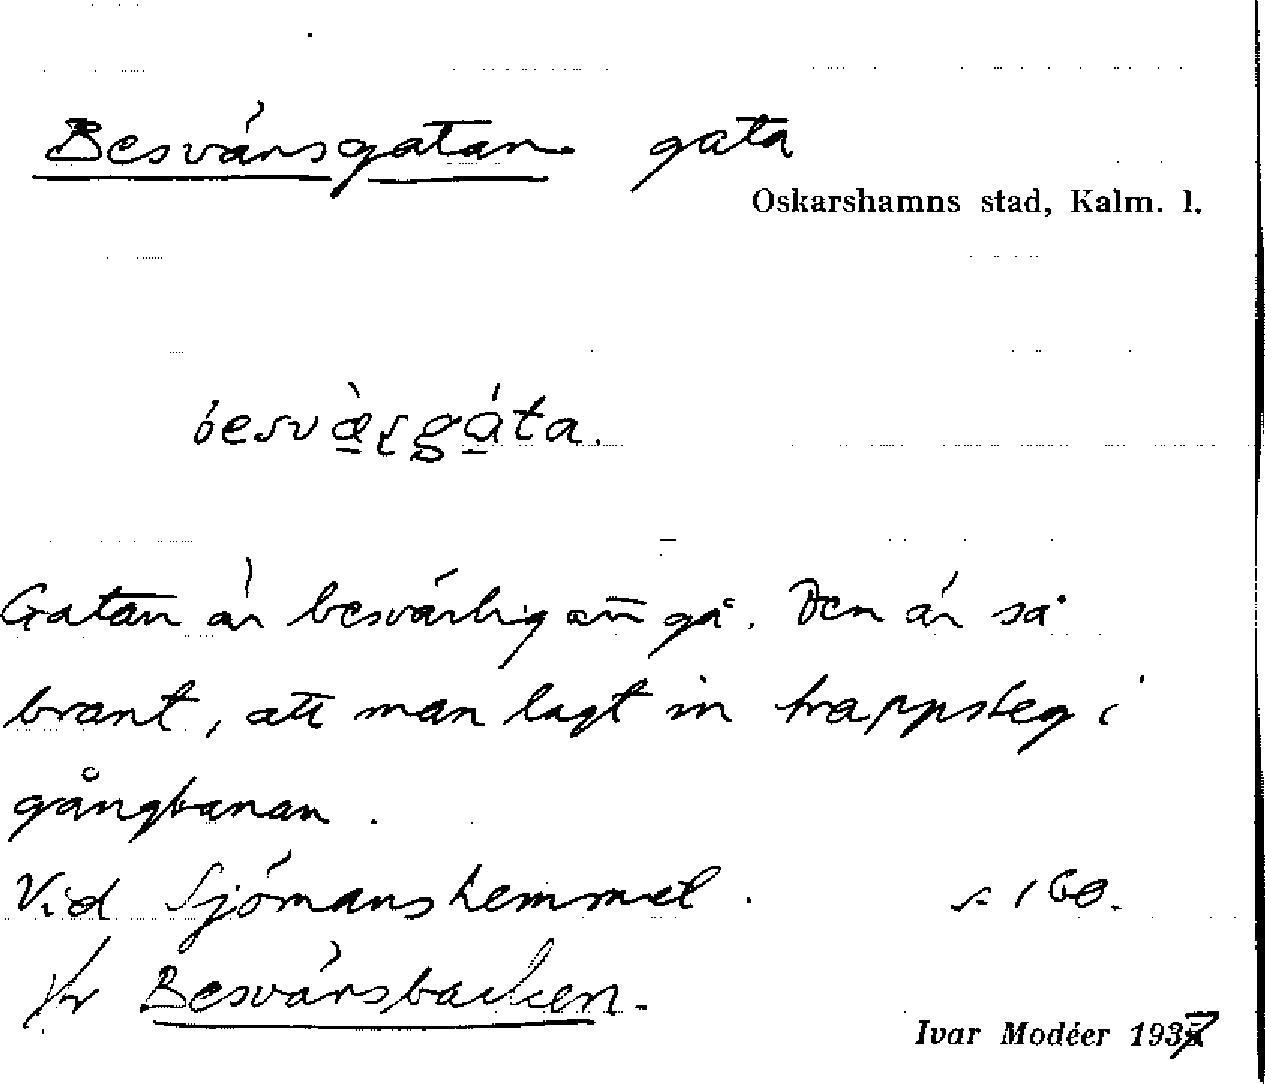 Besvärsgatan gata
Oskarshamns stad, Kalm. l.
besvæ̀ʂgáta.
Gatan är besvärlig att gå. Den är så
brant, att man lagt in trappsteg i
gångbanan.
Vid Sjömanshemmet. s. 160.
Besvärsbacken.
Ivar Modéer 1937